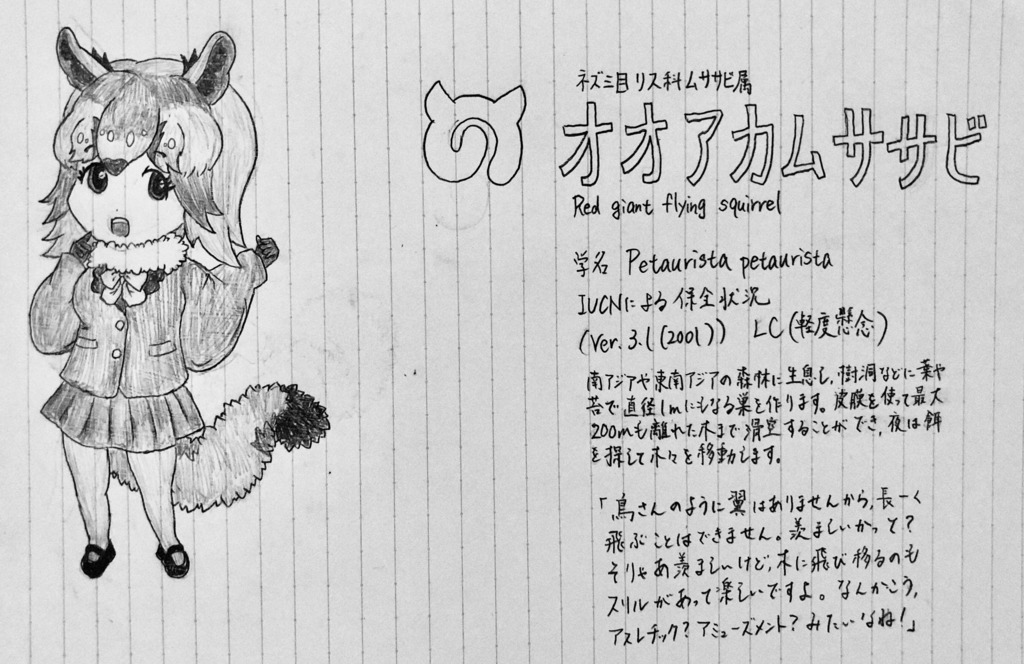 ネズミ目リス科ムササビ属
オオアカムササビ
Red giant flying squirrel
学名 Petaurista petaurista
IUCNによる保全状況
(Ver.3.1(2001)) LC(軽度懸念)
南アジアや東南アジアの森林に生息し、樹洞などに葉や
苔で直径1mにもなる巣を作ります。皮膜を使って最大
200mも離れた木まで滑空することができ、夜は餌
を探して木々を移動します。
「鳥さんのように翼はありませんから、長ーく
飛ぶことはできません。羨ましいかって?
そりゃあ羨ましいけど、木に飛び移るのも
スリルがあって楽しいですよ。なんかこう、
アスレチック?アミューズメント?みたいなね!」